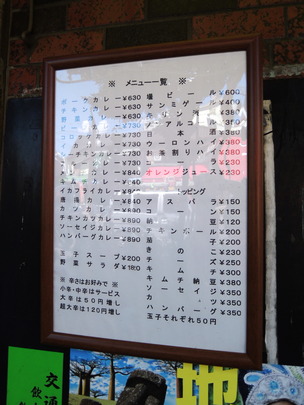 ※ メニュー一覧 ※
ポークカレー ¥630
チキンカレー ¥630
野菜カレー ¥630
ビーフカレー ¥730
コロッケカレー ¥730
カレー ¥730
シーチキンカレー ¥730
カレー ¥840
キムチカレー ¥840
イカフライカレー ¥840
唐揚カレー ¥840
カツカレー ¥890
チキンカツカレー ¥890
ソーセイジカレー ¥890
ハンバーグカレー ¥890
玉子スープ ¥200
野菜サラダ ¥180
※ 辛さはお好みで ※
小辛・中辛はサービス
大辛は50円増し
超大辛は120円増し
瓶ビール ¥600
サンミゲール ¥400
¥380
ノンアルコール ¥350
日本酒 ¥380
ウーロンハイ ¥380
お茶割りハイ ¥380
コーラ ¥230
オレンジジュース ¥230
トッピング
アスパラ ¥150
コーン ¥150
納豆 ¥120
チキンボール ¥200
茄子 ¥200
きのこ ¥230
チーズ ¥250
キムチ ¥300
キムチ納豆 ¥380
ソーセイジ ¥350
カツ ¥350
ハンバーグ ¥350
玉子それぞれ50円
交通
飲
地